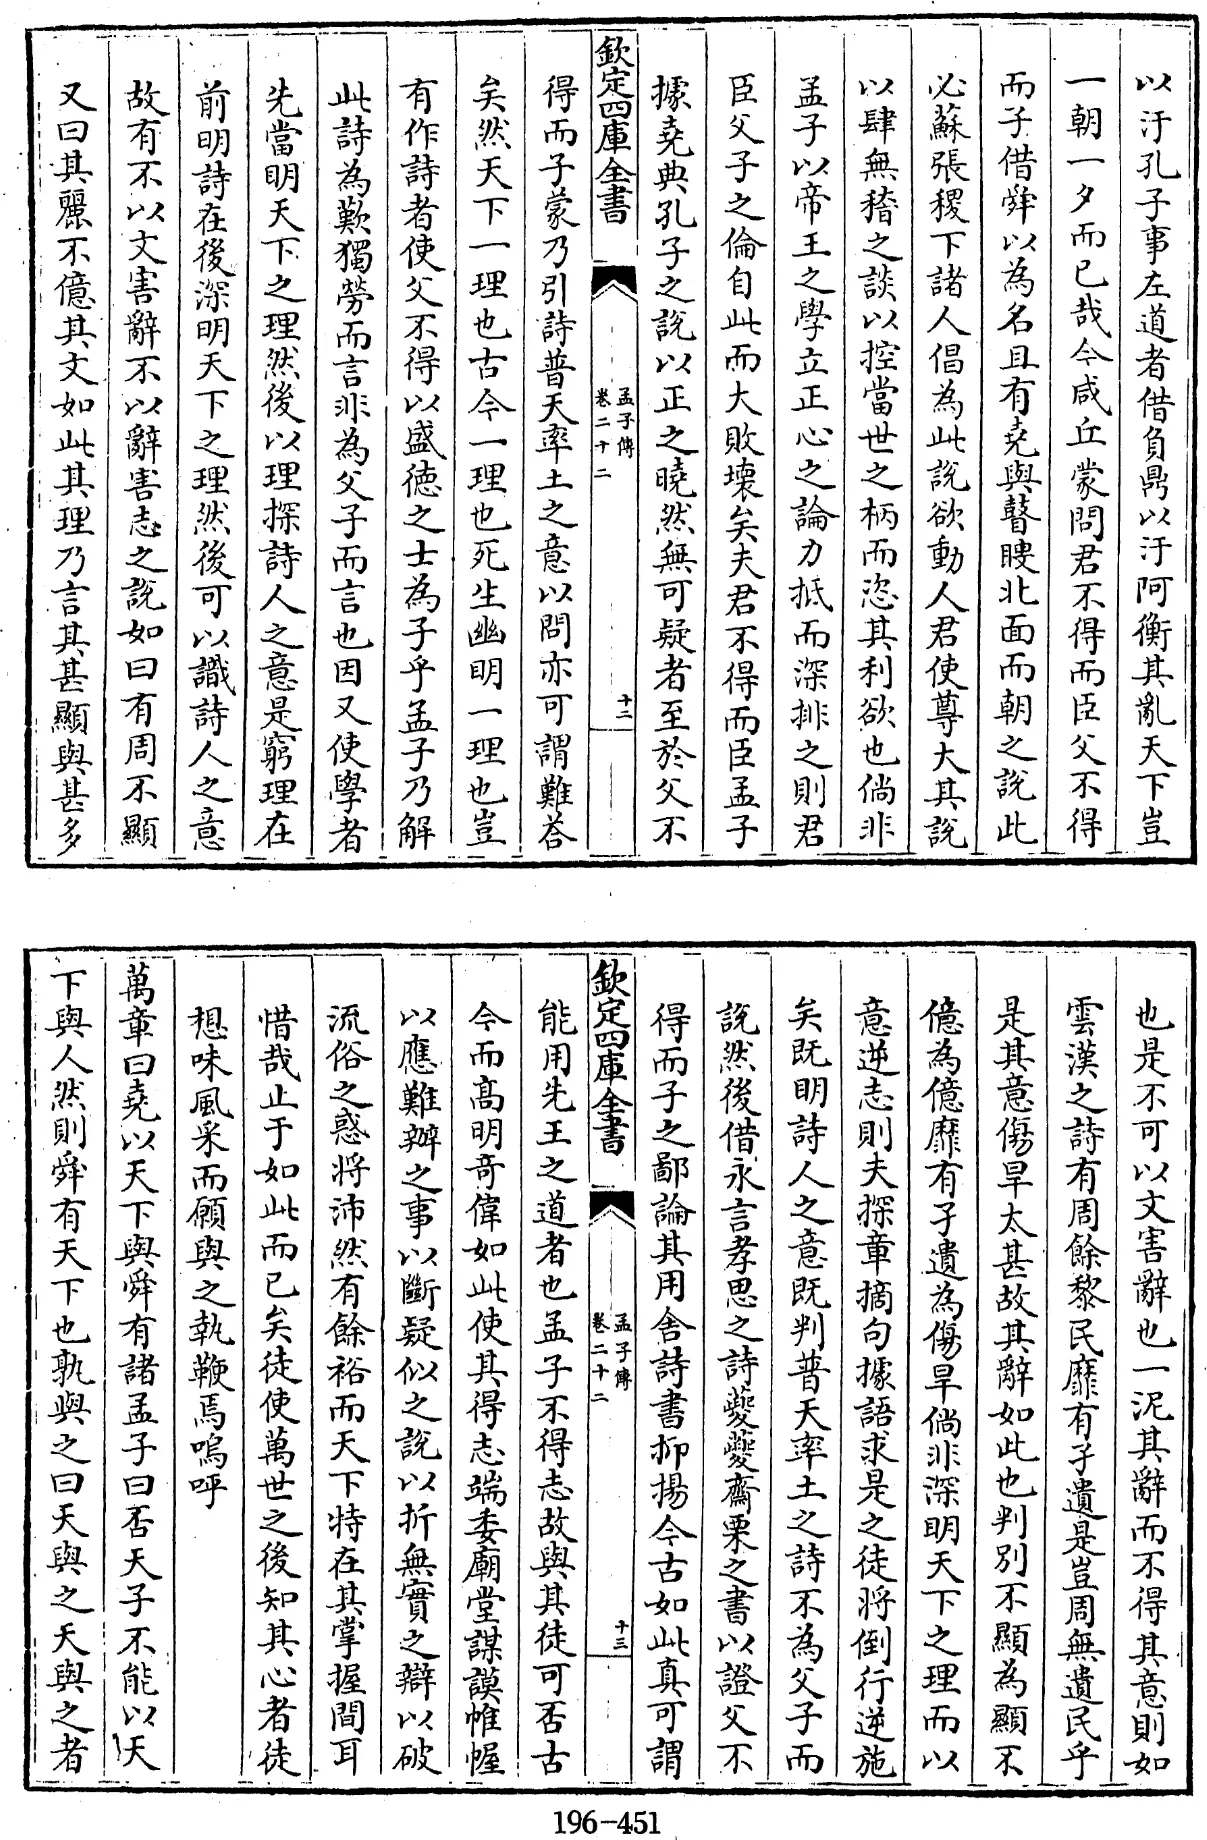 以汙孔子事左道者借負鼎以汙阿衡其亂天下豈
一朝一夕而已哉今咸丘蒙問君不得而臣父不得
而子借舜以為名且有堯與瞽瞍北面而朝之說此
必蘇張稷下諸人倡為此說欲動人君使尊大其說
以肆無稽之談以控當世之柄而恣其利欲也倘非
孟子以帝王之學立正心之論力抵而深排之則君
臣父子之倫自此而大敗壞矣夫君不得而臣孟子
據堯典孔子之說以正之曉然無可疑者至於父不
欽定四庫全書
孟子傳
卷二十二
十二
得而子蒙乃引詩普天率土之意以問亦可謂難答
矣然天下一理也古今一理也死生幽明一理也豈
有作詩者使父不得以盛德之士為子乎孟子乃解
此詩為歎獨勞而言非為父子而言也因又使學者
先當明天下之理然後以理探詩人之意是窮理在
前明詩在後深明天下之理然後可以識詩人之意
故有不以文害辭不以辭害志之說如曰有周不顯
又曰其麗不億其文如此其理乃言其甚顯與甚多
也是不可以文害辭也一泥其辭而不得其意則如
雲漢之詩有周餘黎民靡有孑遺是豈周無遺民乎
是其意傷旱太甚故其辭如此也判別不顯為顯不
億為億靡有孑遺為傷旱倘非深明天下之理而以
意逆志則夫探章摘句據語求是之徒將倒行逆施
矣既明詩人之意既判普天率土之詩不為父子而
說然後借永言孝思之詩夔夔齋栗之書以證父不
得而子之鄙論其用舍詩書抑揚今古如此真可謂
欽定四庫全書
孟子傳
卷二十二
十三
能用先王之道者也孟子不得志故與其徒可否古
今而高明竒偉如此使其得志端委廟堂謀謨帷幄
以應難辦之事以斷疑似之說以折無實之辯以破
流俗之惑將沛然有餘裕而天下特在其掌握間耳
惜哉止于如此而已矣徒使萬世之後知其心者徒
想味風采而願與之執鞭焉嗚呼
萬章曰堯以天下與舜有諸孟子曰否天子不能以天
下與人然則舜有天下也孰與之曰天與之天與之者
196-451